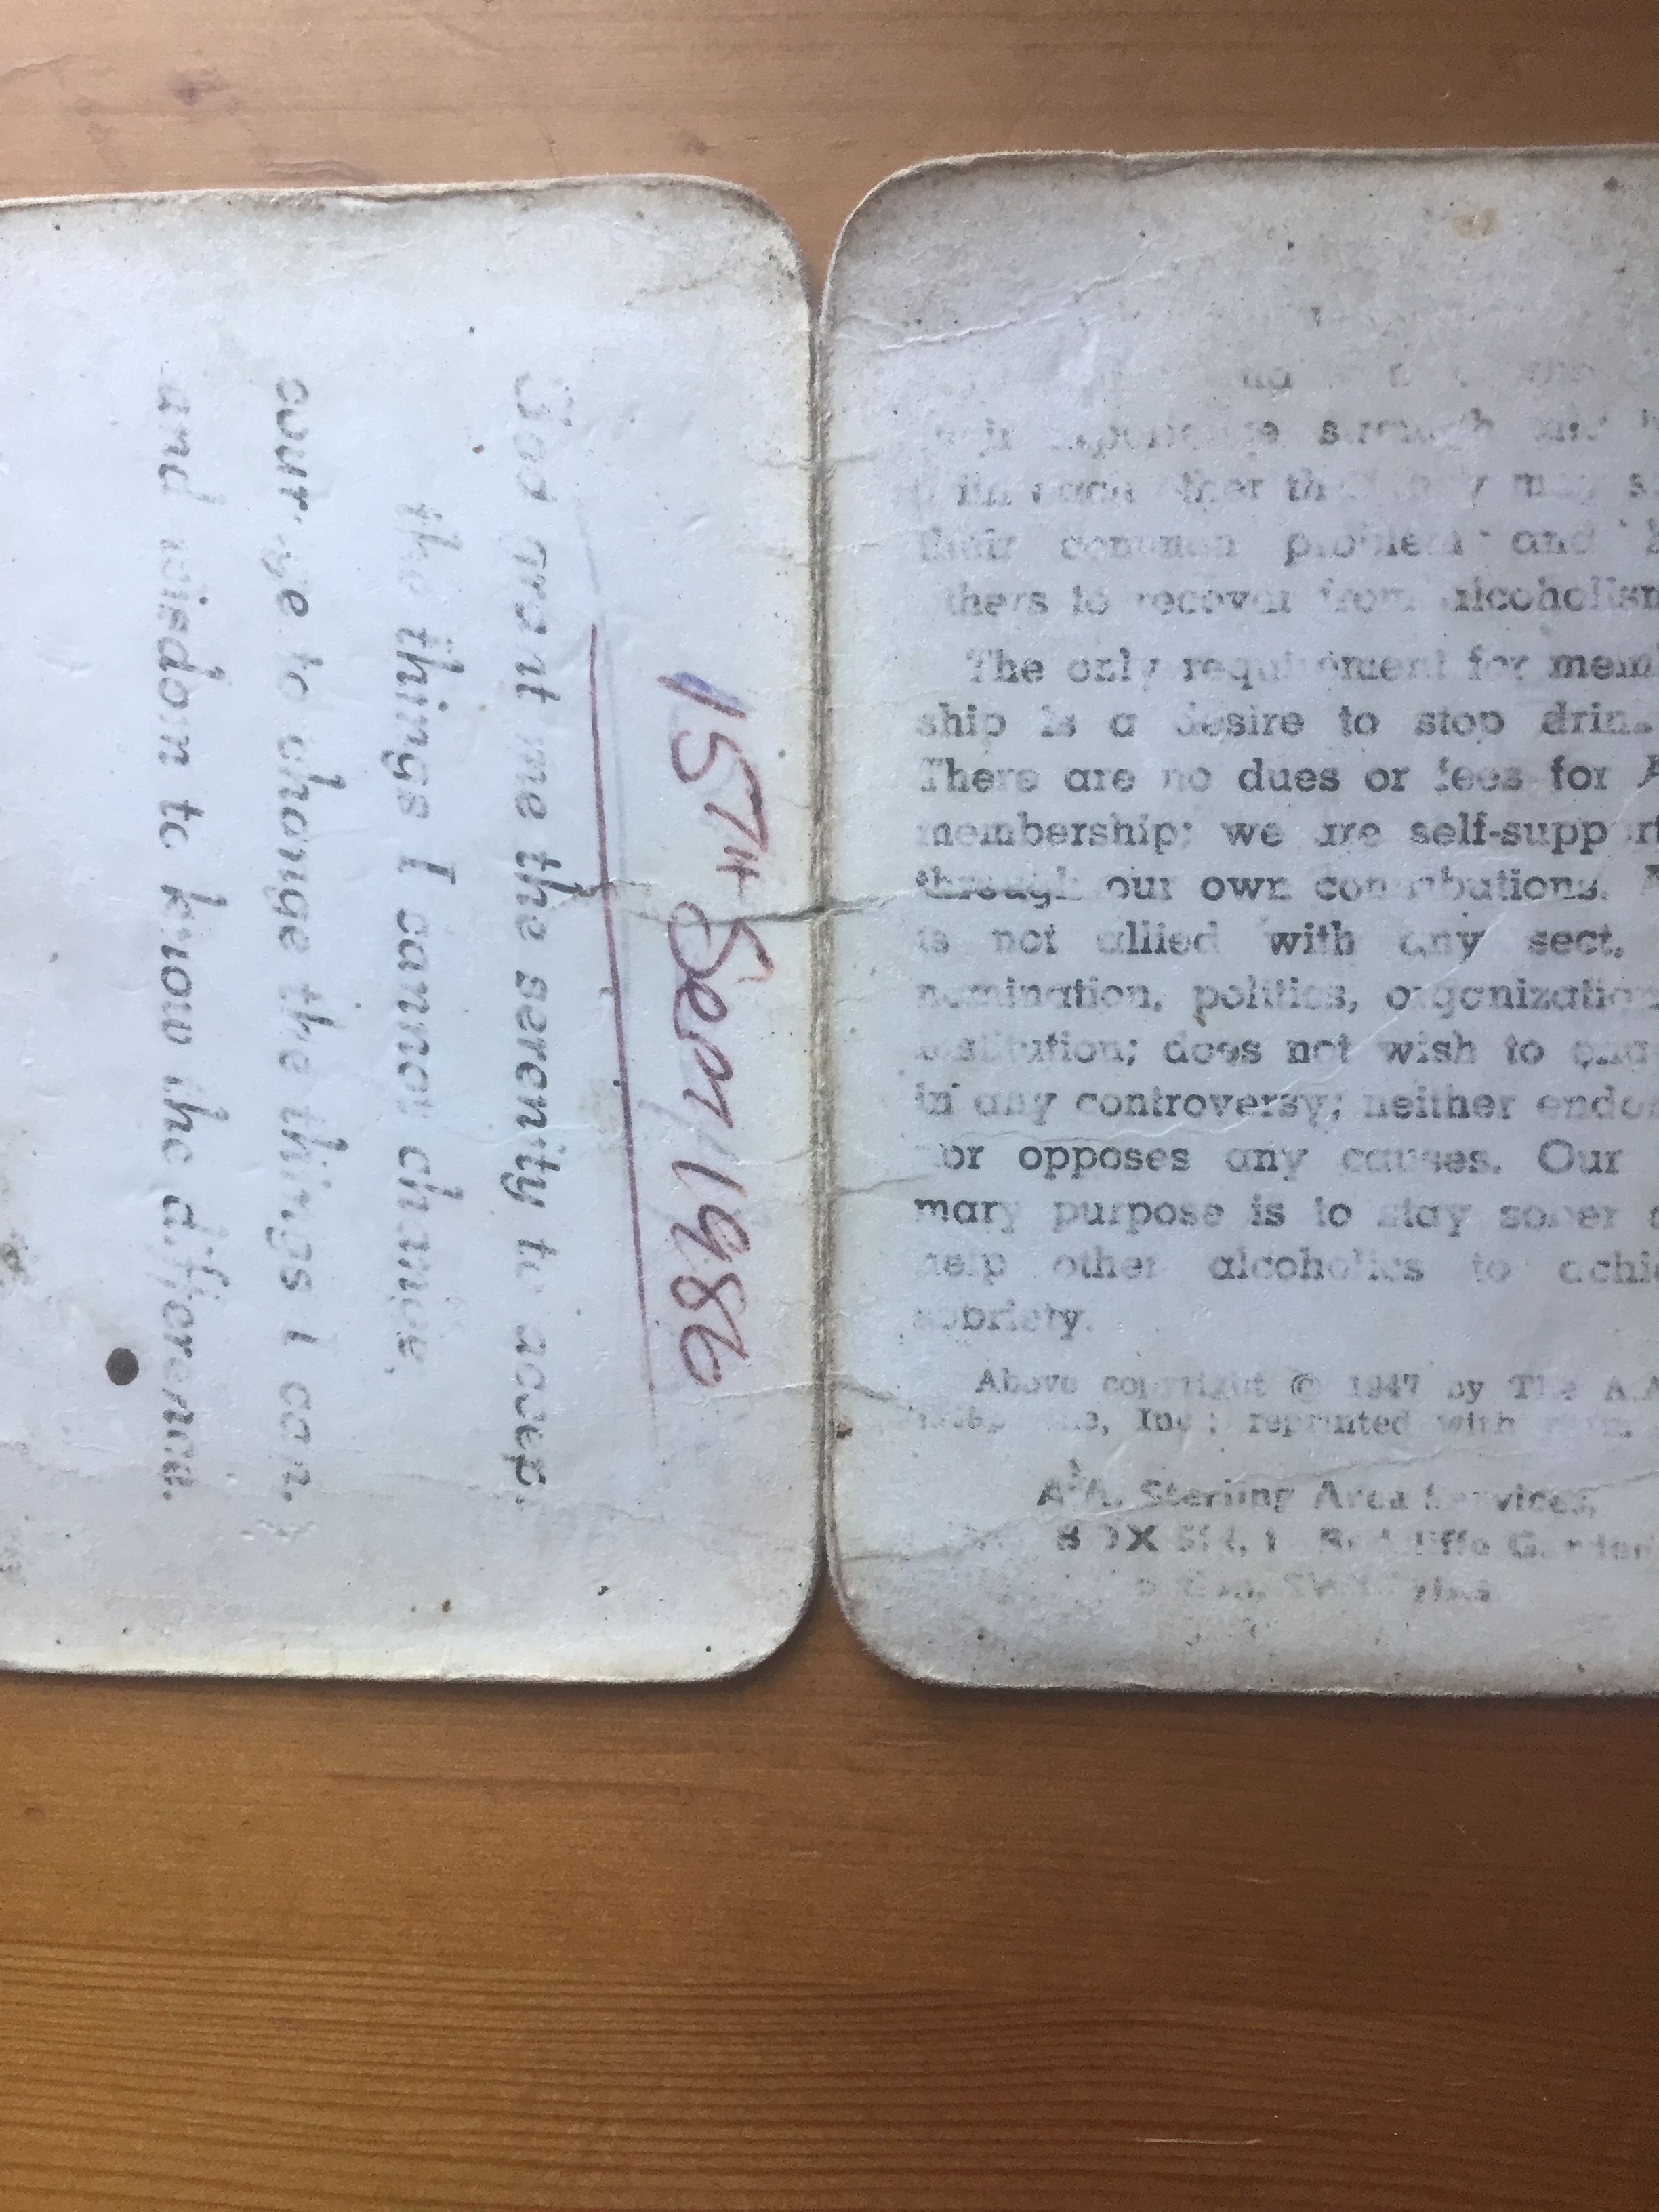 15TH SEPT 1986
God grant me the serenity to accept
the things I cannot change,
courage to change the things I can,
and wisdom to know the difference.
their experience strength and
with each other that they may s
their common problem and
thers to recover from alcoholism
The only requirement for mem
ship is a desire to stop drin
There are no dues or fees for A
membership; we are self-support
through our own contributions. A
is not allied with any sect,
nomination, politics, organization
institution; does not wish to eng
in any controversy; neither endor
nor opposes any causes. Our
mary purpose is to stay sober a
help other alcoholics to achie
sobriety.
Above copyright © 1947 by The A.A
Inc; reprinted with
A.A. Sterling Area Services,
BOX Redcliffe Garden